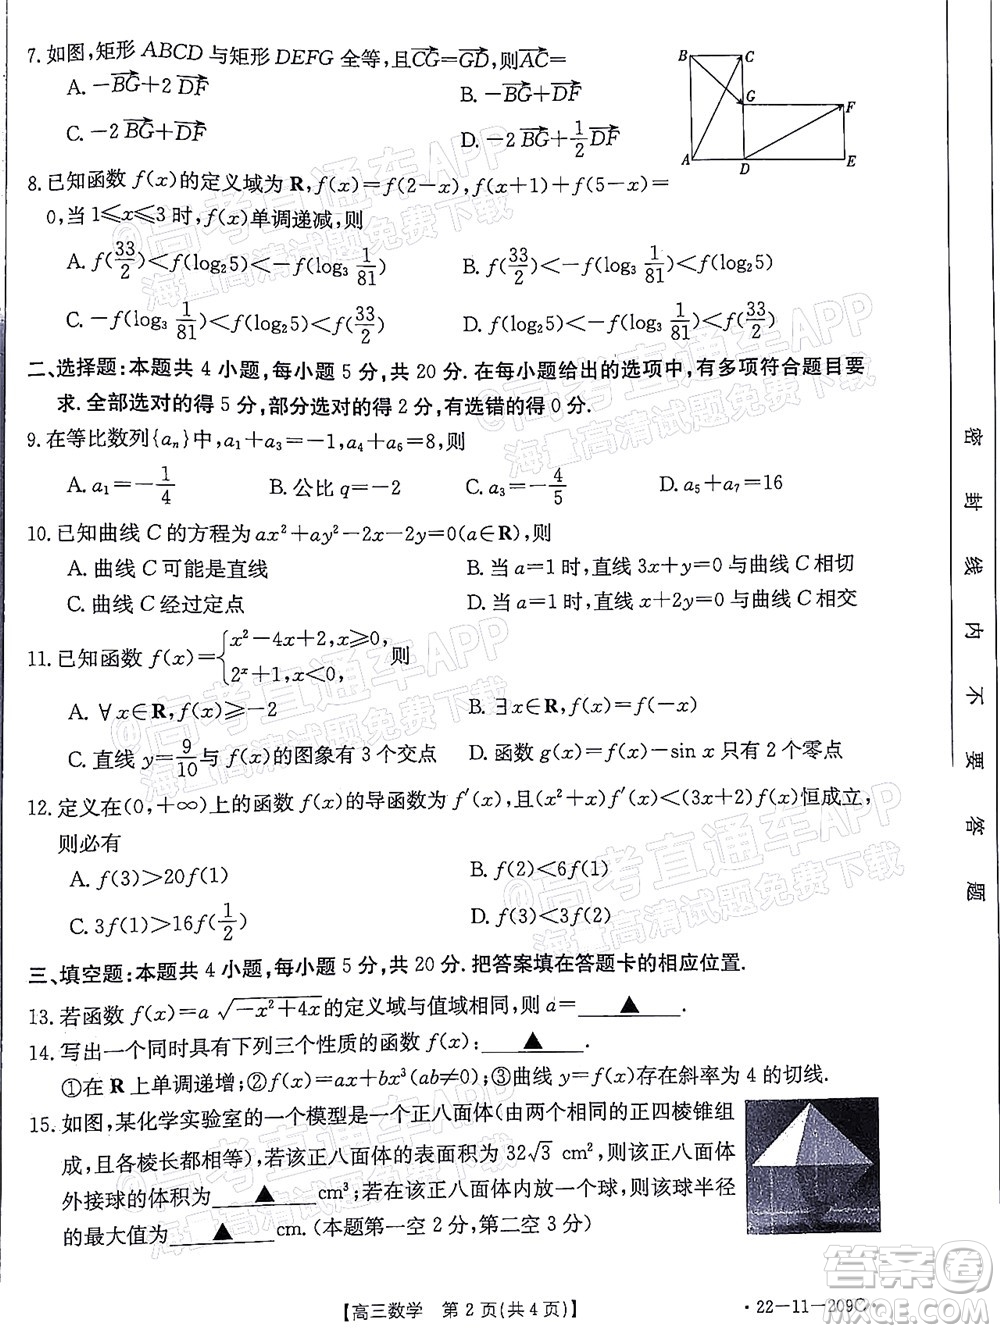 7.如图,矩形 ABCD 与矩形 DEFG 全等,且$\overrightarrow{CG}=\overrightarrow{GD}$,则$\overrightarrow{AC}$=
A. $-\overrightarrow{BG}+2\overrightarrow{DF}$ B. $-\overrightarrow{BG}+\overrightarrow{DF}$
C. $-2\overrightarrow{BG}+\overrightarrow{DF}$ D. $-2\overrightarrow{BG}+\frac{1}{2}\overrightarrow{DF}$
B C
G F
A D E
8.已知函数 f(x)的定义域为 R,f(x)=f(2−x),f(x+1)+f(5−x)=
0,当 1⩽x⩽3 时,f(x)单调递减,则
A. $f(\frac{33}{2})<f(\log_2 5)<-f(\log_3 \frac{1}{81})$ B. $f(\frac{33}{2})<-f(\log_3 \frac{1}{81})<f(\log_2 5)$
C. $-f(\log_3 \frac{1}{81})<f(\log_2 5)<f(\frac{33}{2})$ D. $f(\log_2 5)<-f(\log_3 \frac{1}{81})<f(\frac{33}{2})$
二、选择题:本题共 4 小题,每小题 5 分,共 20 分.在每小题给出的选项中,有多项符合题目要
求.全部选对的得 5 分,部分选对的得 2 分,有选错的得 0 分.
9.在等比数列{aₙ}中,a₁+a₃=−1,a₄+a₆=8,则
A. $a_1=-\frac{1}{4}$ B. 公比 q=−2 C. $a_3=-\frac{4}{5}$ D. a₅+a₇=16
10.已知曲线 C 的方程为 ax²+ay²−2x−2y=0(a∈R),则
A. 曲线 C 可能是直线 B. 当 a=1 时,直线 3x+y=0 与曲线 C 相切
C. 曲线 C 经过定点 D. 当 a=1 时,直线 x+2y=0 与曲线 C 相交
11.已知函数 $f(x)=\begin{cases}x^2-4x+2,x⩾0,\\2^x+1,x<0,\end{cases}$则
A. ∀x∈R,f(x)⩾−2 B. ∃x∈R,f(x)=f(−x)
C. 直线 $y=\frac{9}{10}$与 f(x)的图象有 3 个交点 D. 函数 g(x)=f(x)−sin x 只有 2 个零点
12.定义在(0,+∞)上的函数 f(x)的导函数为 f′(x),且(x²+x)f′(x)<(3x+2)f(x)恒成立,
则必有
A. f(3)>20f(1) B. f(2)<6f(1)
C. $3f(1)>16f(\frac{1}{2})$ D. f(3)<3f(2)
三、填空题:本题共 4 小题,每小题 5 分,共 20 分.把答案填在答题卡的相应位置.
13.若函数 $f(x)=a\sqrt{-x^2+4x}$的定义域与值域相同,则 a= ▲ .
14.写出一个同时具有下列三个性质的函数 f(x): ▲ .
①在 R 上单调递增;②f(x)=ax+bx³(ab≠0);③曲线 y=f(x)存在斜率为 4 的切线.
15.如图,某化学实验室的一个模型是一个正八面体(由两个相同的正四棱锥组
成,且各棱长都相等),若该正八面体的表面积为 32√3 cm²,则该正八面体的
外接球的体积为 ▲ cm³;若在该正八面体内放一个球,则该球半径
的最大值为 ▲ cm.(本题第一空 2 分,第二空 3 分)
密 封 线 内 不 要 答 题
【高三数学 第 2 页(共 4 页)】 ·22−11−209C·
@高考直通车APP
海量高清试题免费下载
@高考直通车APP
海量高清试题免费下载
@高考直通车APP
海量高清试题免费下载
@高考直通车APP
海量高清试题免费下载
@高考直通车APP
海量高清试题免费下载
答案圈
MXQE.COM